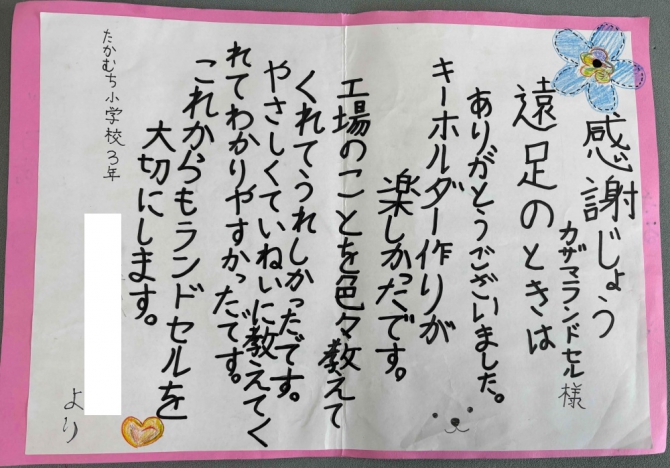 感謝じょう
カザマランドセル様
遠足のときは
ありがとうございました。
キーホルダー作りが
楽しかったです。
工場のことを色々教えて
くれてうれしかったです。
やさしくていねいに教えてく
れてわかりやすかったです。
これからもランドセルを
大切にします。
たかむち小学校3年
より